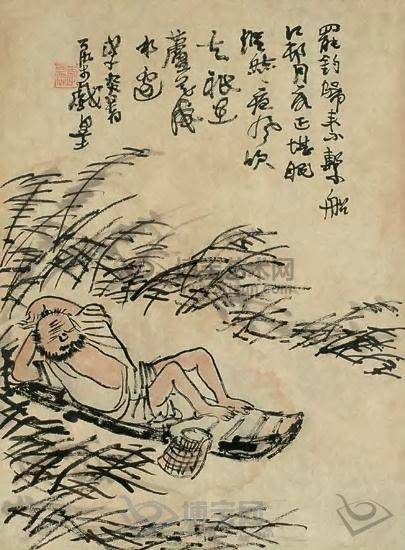 罷釣歸來不繫船
江邨月正堪眠
縱然一夜風吹
去祇在
蘆花淺
水邊
戊子炎暑
戲墨
博宝艺术网
博宝网